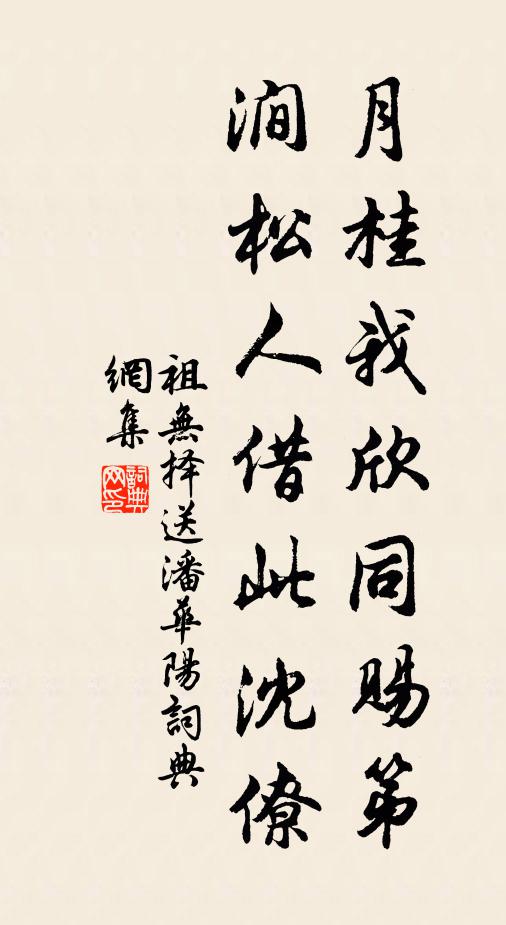 月桂我欣同賜第
澗松人借此沈僚
祖無择送潘華陽詞典
網集
詞典網印